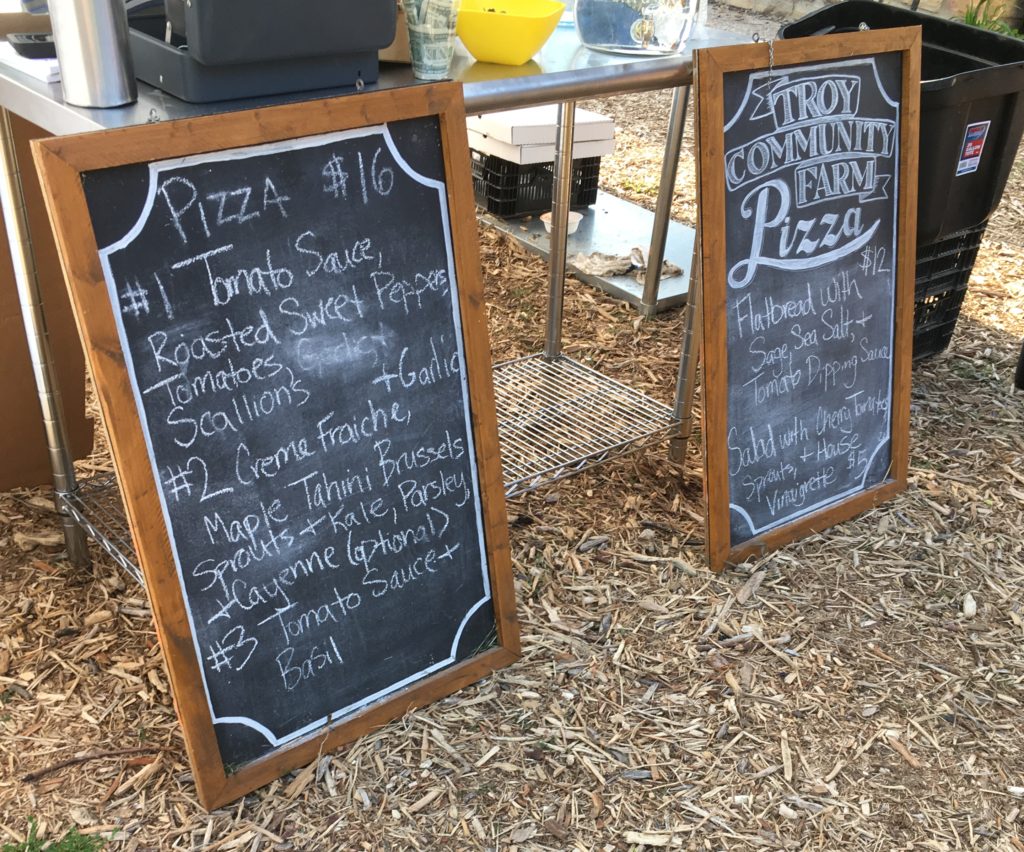 Pizza $16
#1 Tomato Sauce,
Roasted Sweet Peppers
Tomatoes, + Garlic
Scallions
#2 Creme Fraiche,
Maple Tahini Brussels
Sprouts + Kale, Parsley
+ Cayenne (optional)
#3 Tomato Sauce +
Basil
TROY
COMMUNITY
FARM
Pizza
$12
Flatbread with
Sage, Sea Salt, +
Tomato Dipping Sauce
Salad with Cherry Tomatoes
Sprouts, + House
Vinaigrette $5